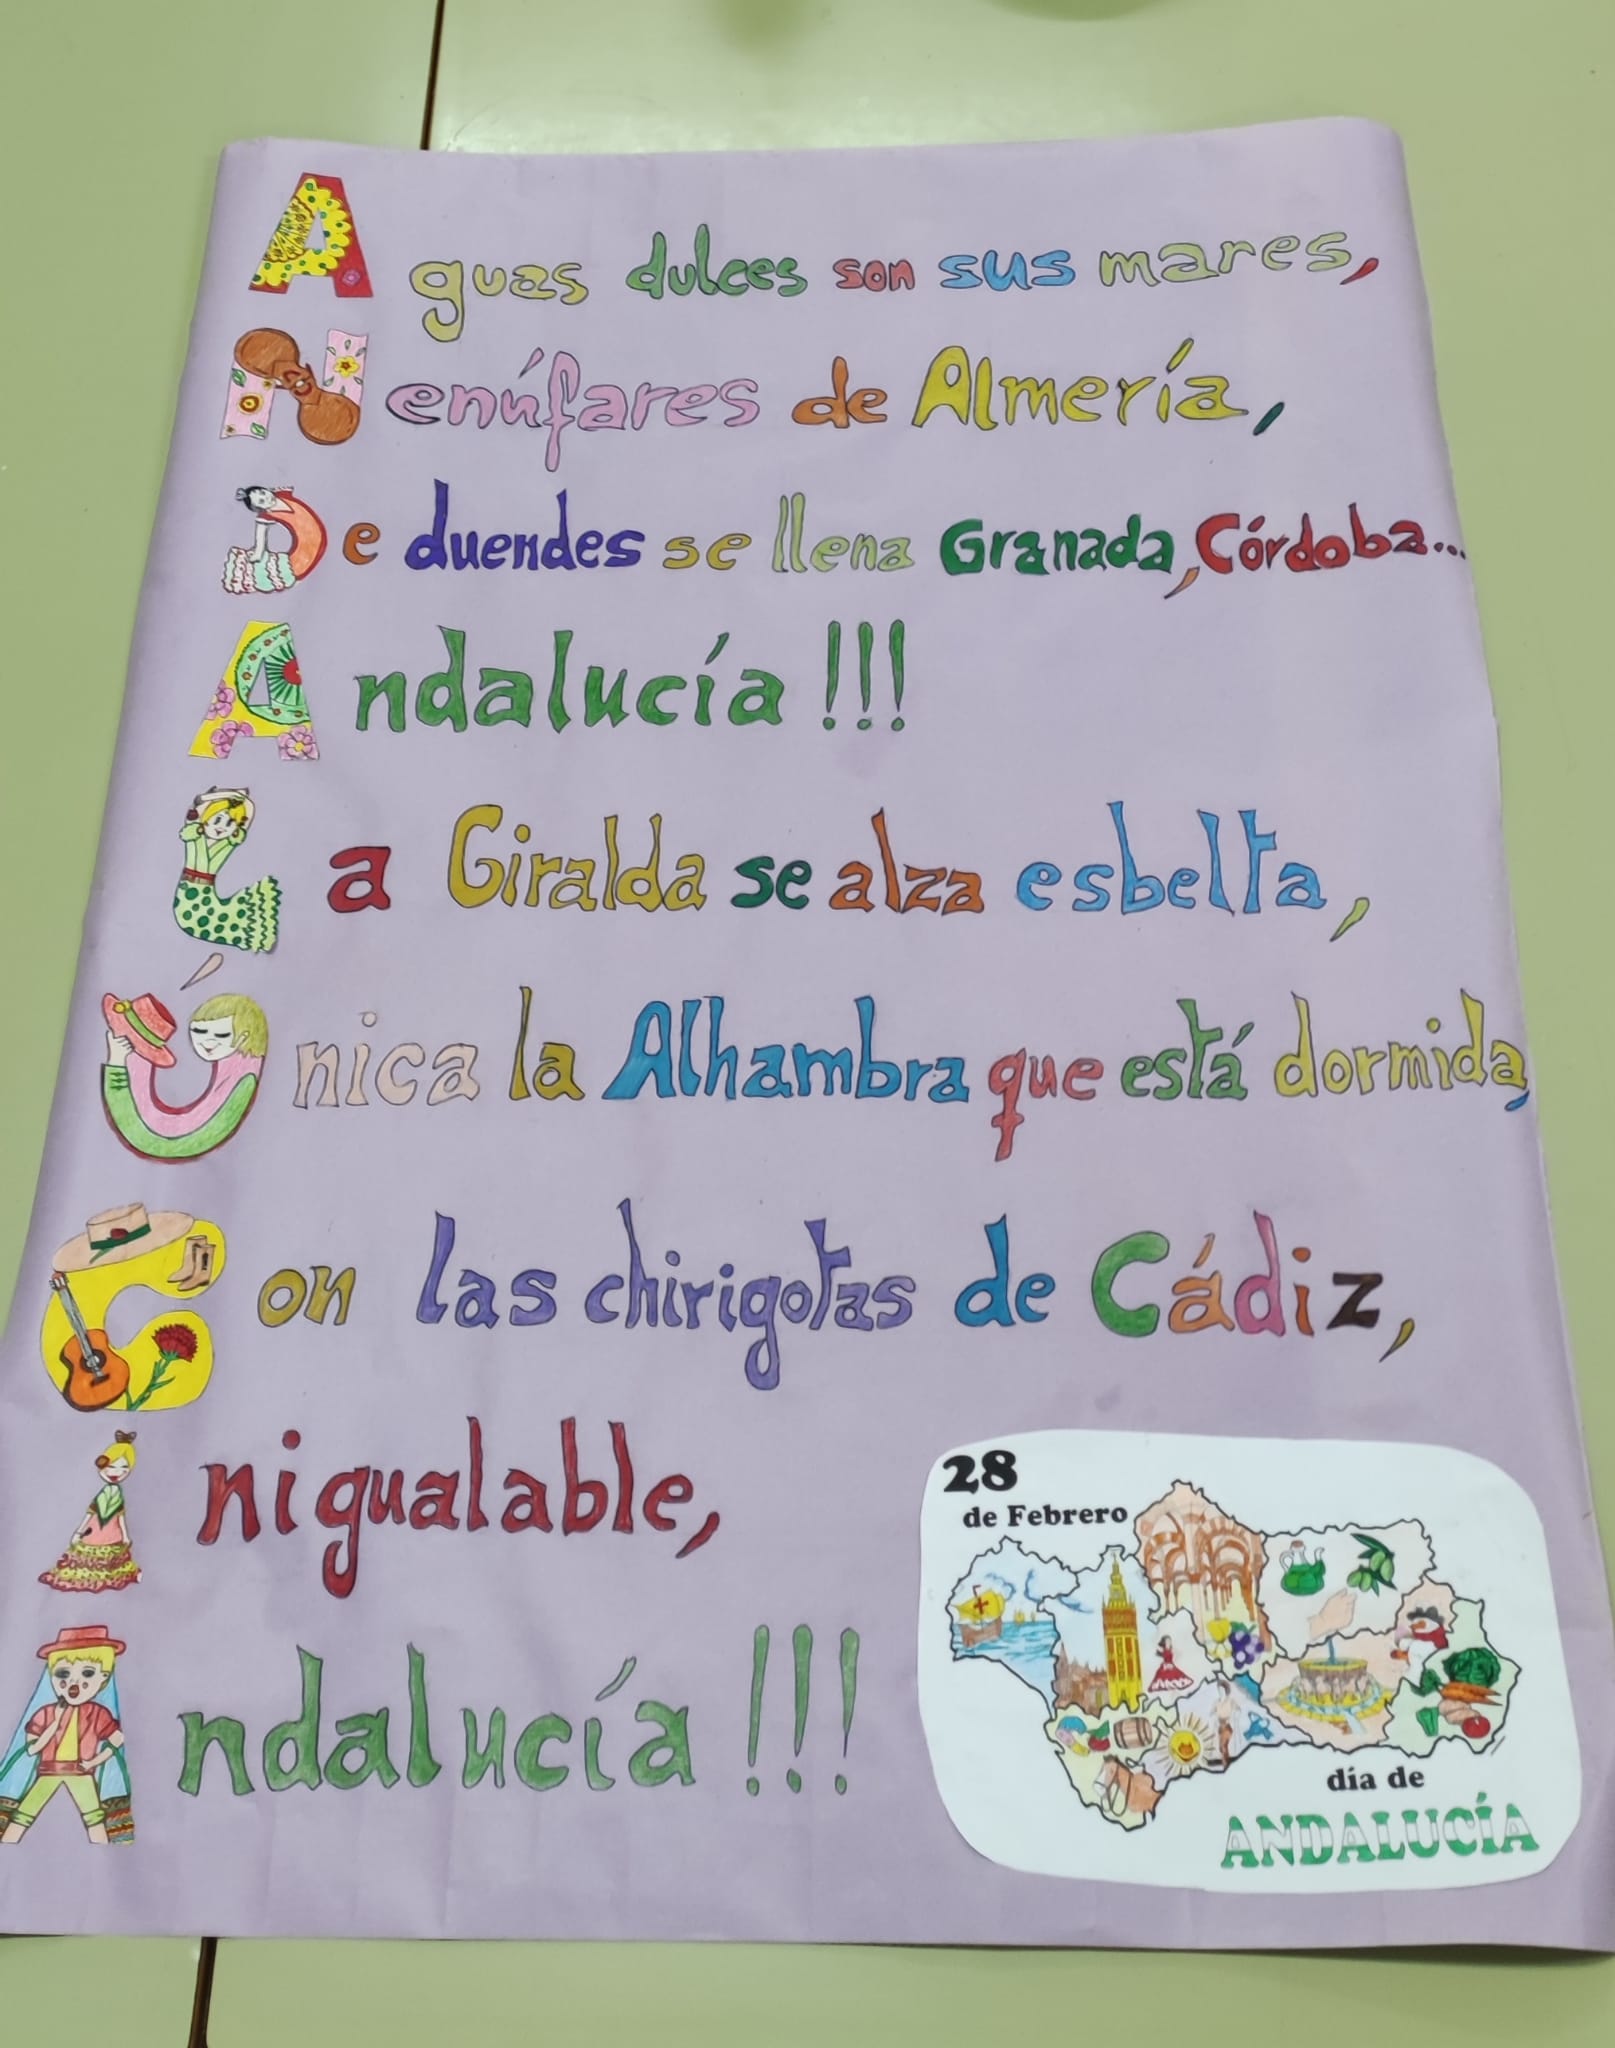 Aguas dulces son sus mares,
Nenúfares de Almería,
De duendes se llena Granada, Córdoba...
Andalucía!!!
La Giralda se alza esbelta,
Única la Alhambra que está dormida,
Con las chirigotas de Cádiz,
Inigualable,
Andalucía!!!
28
de Febrero
día de
ANDALUCÍA